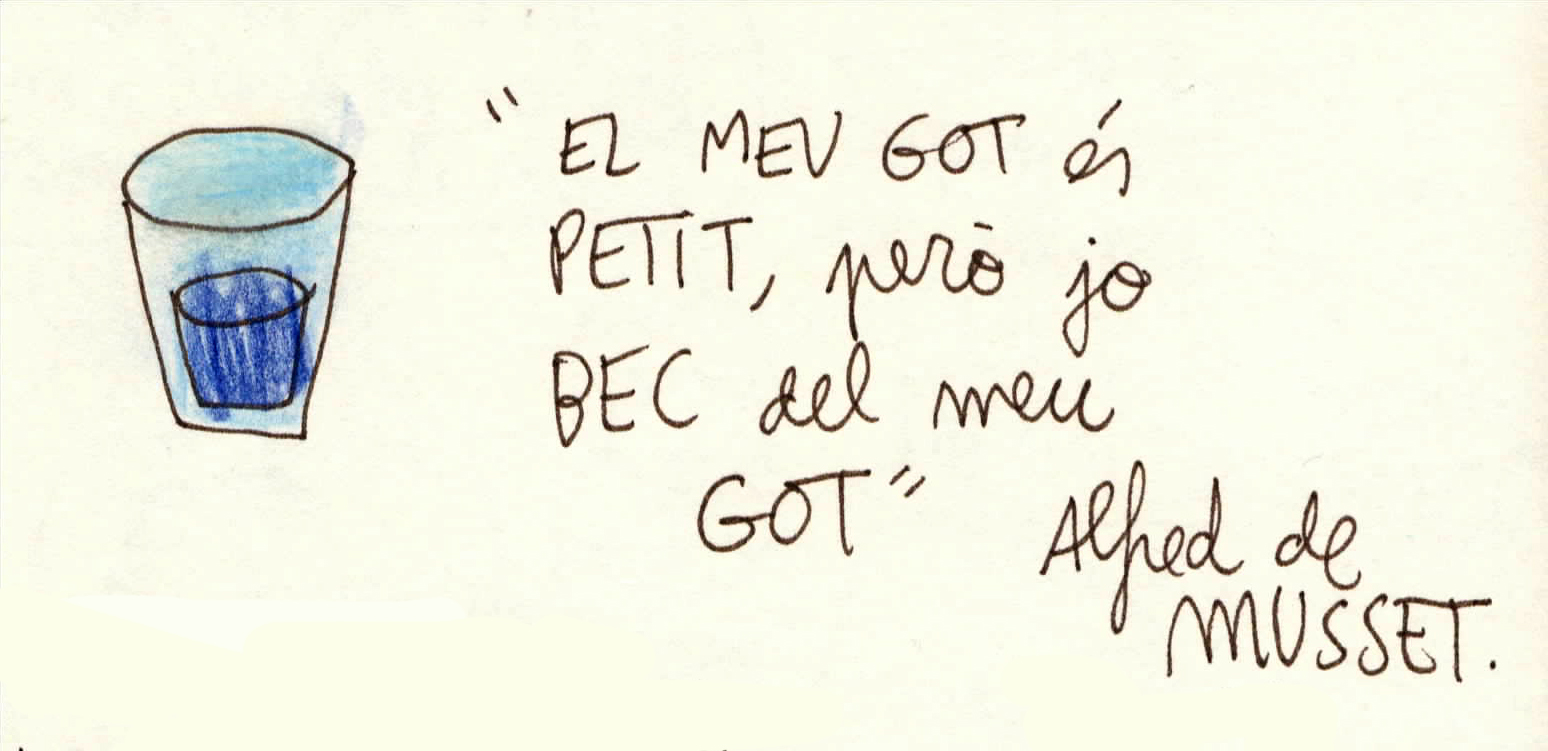 "EL MEU GOT és
PETIT, però jo
BEC del meu
GOT"
Alfred de
MUSSET.